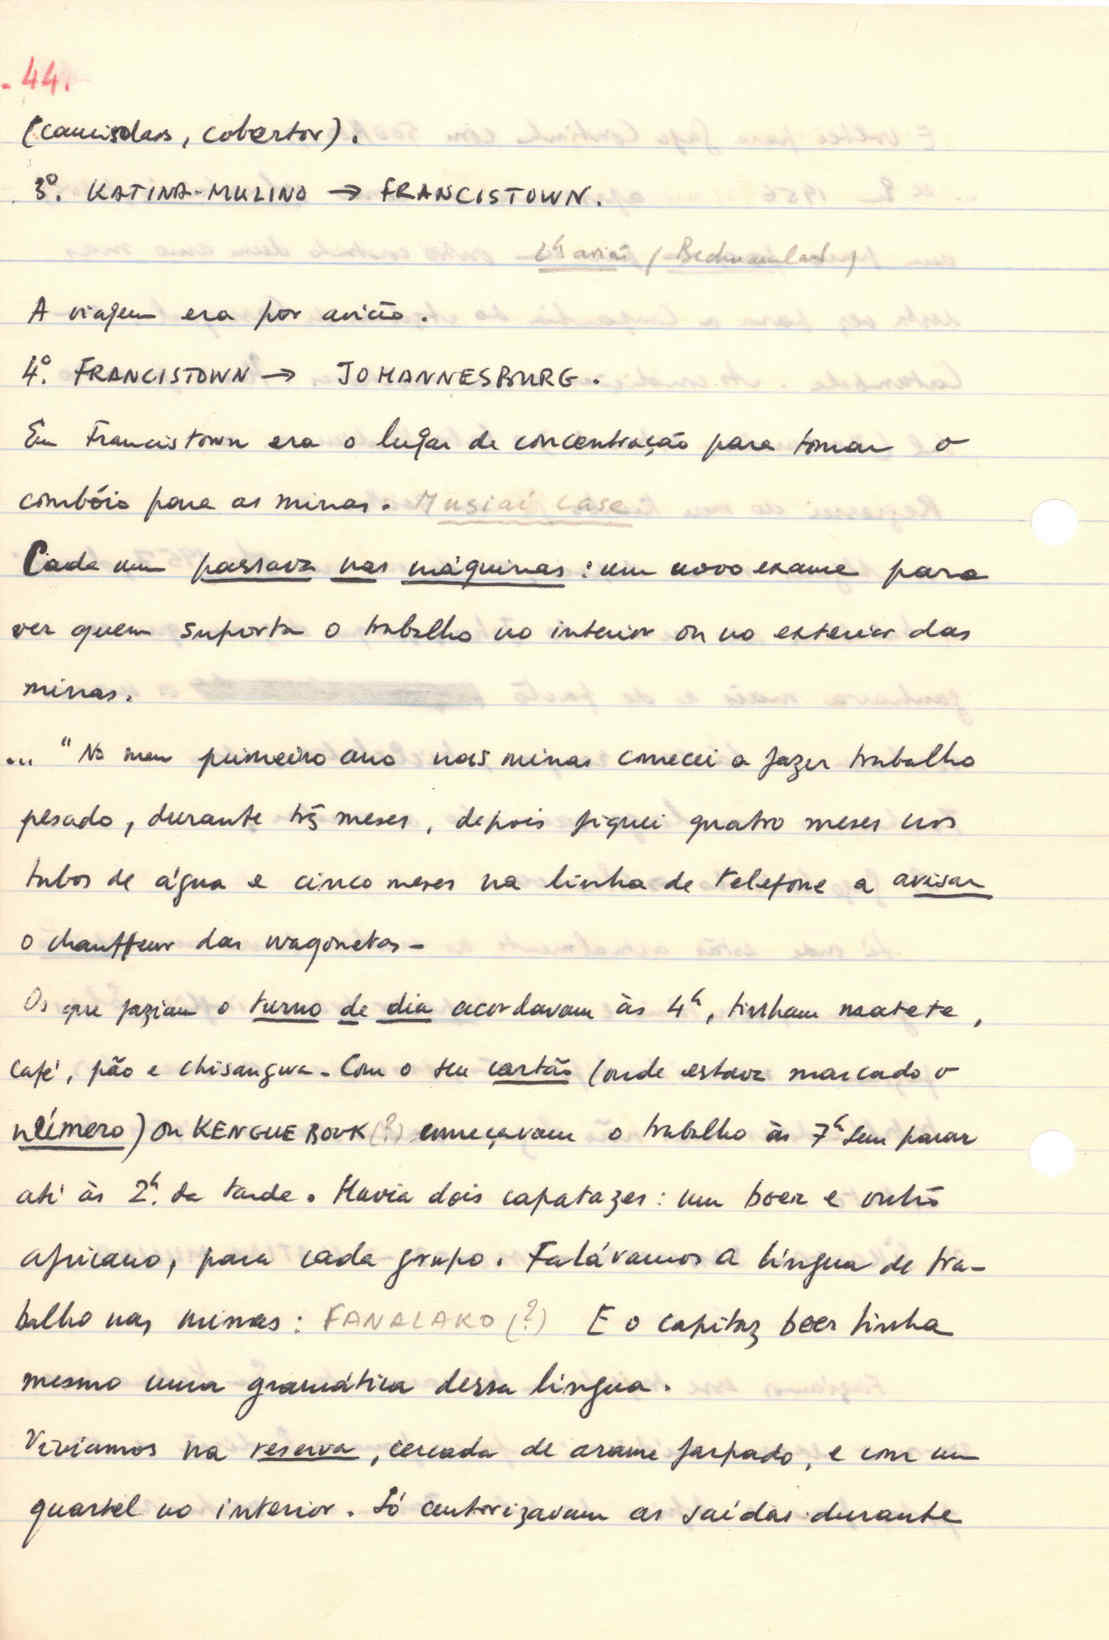 . 44.
(camisolas, cobertor).
3º. KATIMA-MULINO → FRANCISTOWN.
avião (Bechuanaland)
A viagem era por avião.
4º. FRANCISTOWN → JOHANNESBURG.
Em Francistown era o lugar de concentração para tomar o
combóio para as minas. Musiaí case
Cada um passava nas máquinas: um novo exame para
ver quem suporta o trabalho no interior ou no exterior das
minas.
... "No meu primeiro ano nas minas comecei a fazer trabalho
pesado, durante três meses, depois fiquei quatro meses nos
tubos de água e cinco meses na linha de telefone a avisar
o chauffeur das wagonetas-
Os que faziam o turno de dia acordavam às 4h, tinham matete,
café, pão e chisangua. Com o seu cartão (onde estava marcado o
número) ou KENGUE BOOK (?) começavam o trabalho às 7h sem parar
até às 2h. da tarde. Havia dois capatazes: um boer e outro
africano, para cada grupo. Falávamos a língua de tra-
balho nas minas: FANALAKO (?) E o capitaz boer tinha
mesmo uma gramática dessa língua.
Vivíamos na reserva, cercada de arame farpado, e com um
quartel no interior. Só autorizavam as saídas durante